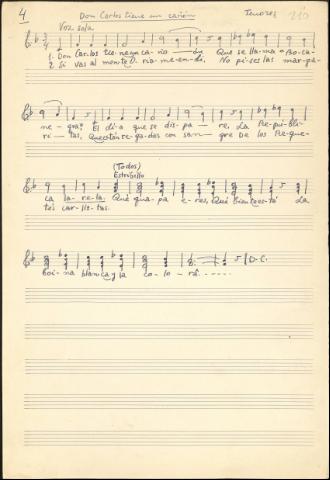 4 Don Carlos tiene un cañón Tenores 210
Voz sola
1. Don Carlos tie-ne un ca-ño-ón Que se lla-ma Bo-ca-
2. Si vas al monte Oria-mendi No pi-ses las marga-
ne-gra El dí-a que se dis-pa-re, La Re-pú-bli-
ri-tas, Que están re-ga-das con san-gre De los Re-que-
(Todos)
Estribillo
ca la-re-la. Qué gua-pa e-res, Qué bien te es-tá La
tés car-lis-tas.
boi-na blanca y la co-lo-rá.
D.C.